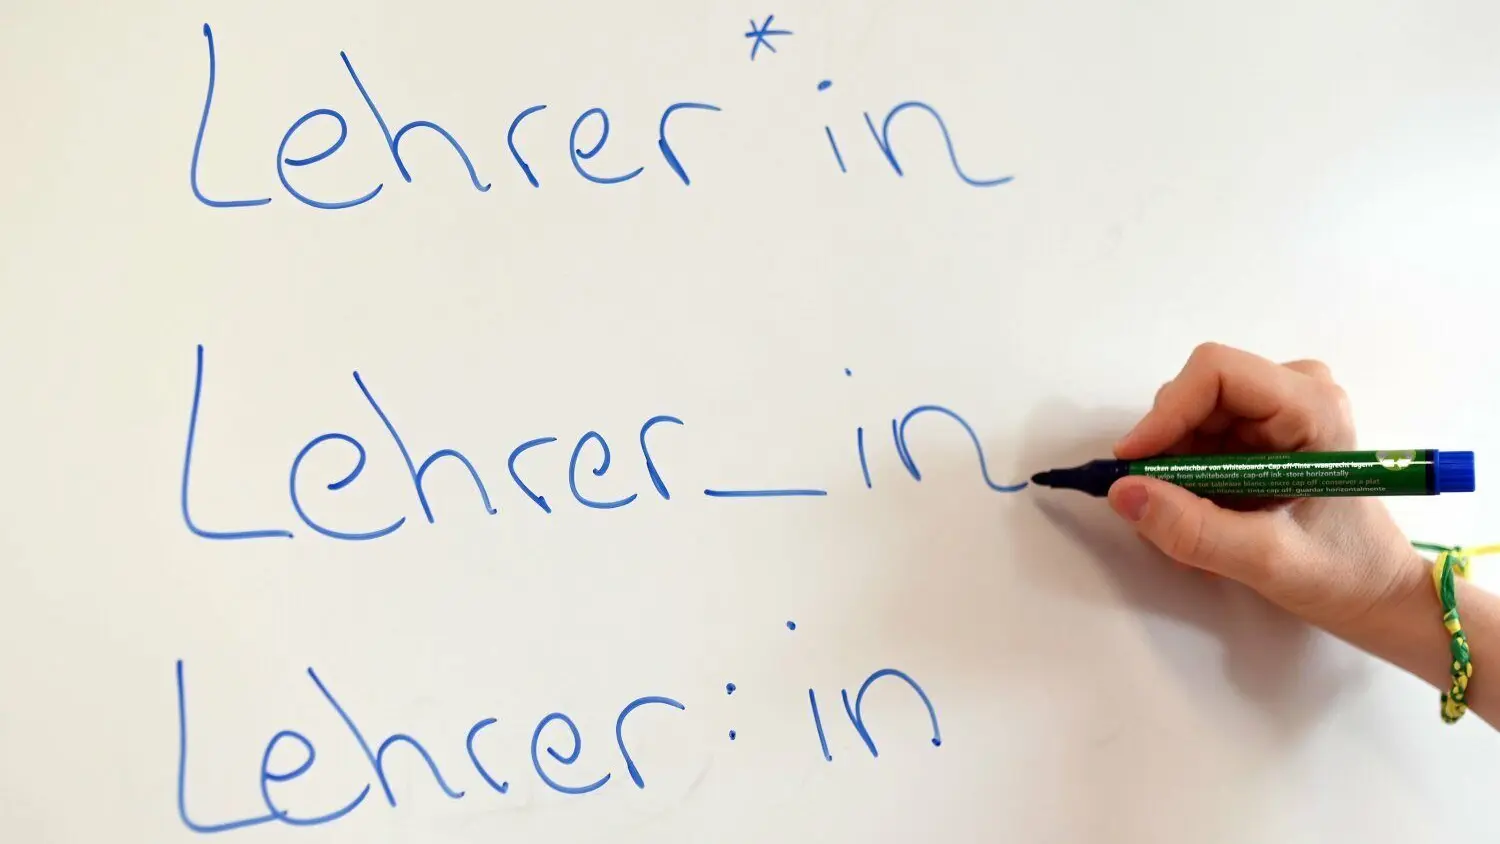 Lehrer*in
Lehrer_in
Lehrer:in
trocken abwischbar von Whiteboards · Cap off-Tinte · waagrecht lagern
wipe from whiteboards · cap-off ink · store horizontally
sur tableaux blancs · encre cap off · conserver à plat
tinta cap off · guardar horizontalmente